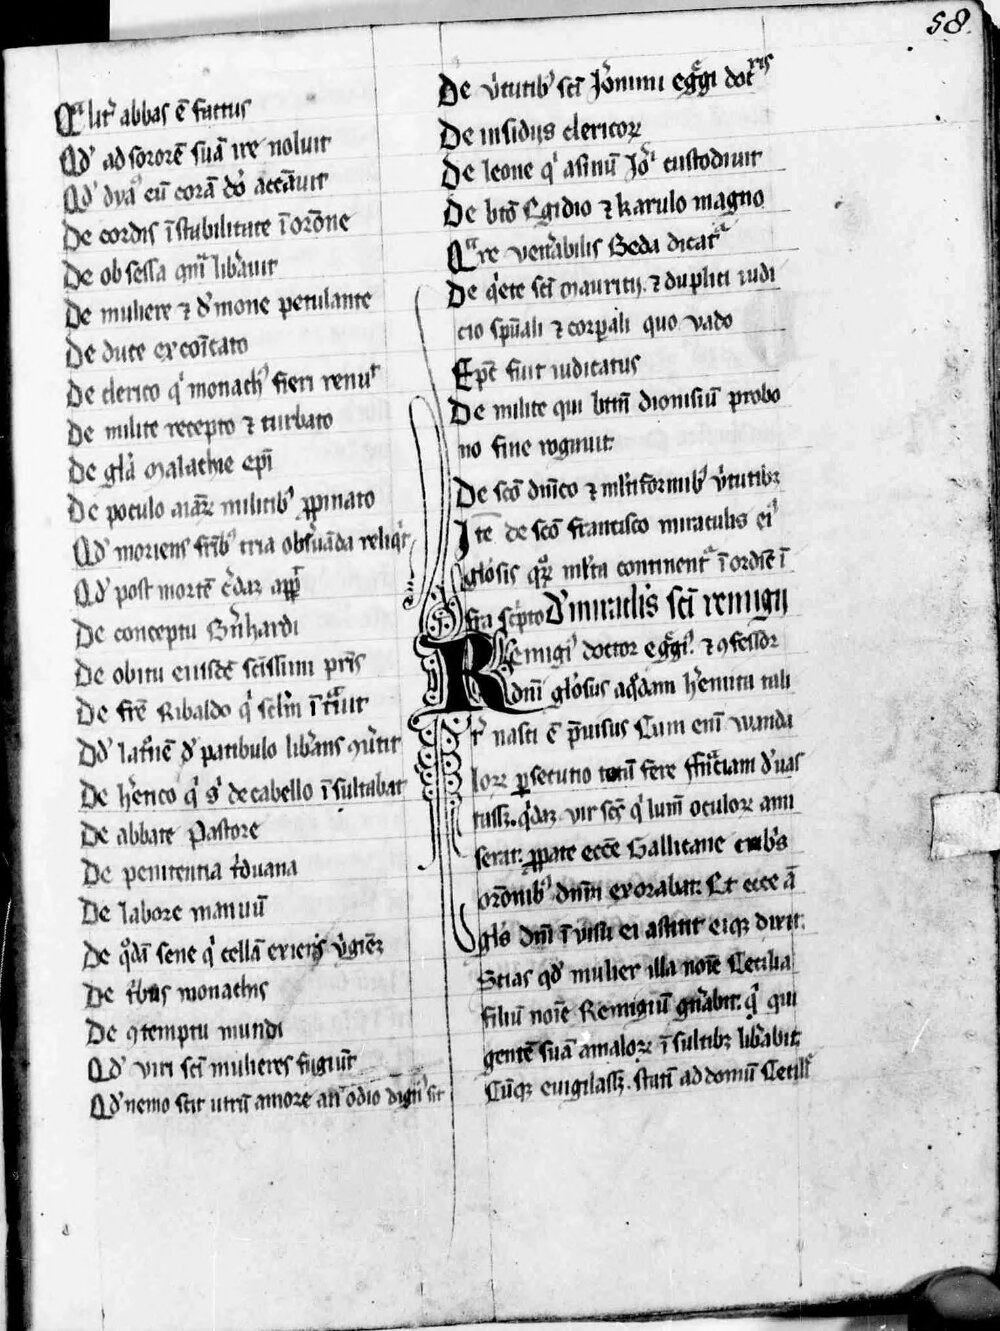 58.
Qalit᷑ abbas ē factus
Qd' ad sororē suā ire noluit
Qd' dyā eū corā dō accāvit
De cordis īstabilitate ī orōne
De obsessa qm̄ libāuit
De muliere ⁊ d'mone petulante
De duce excōicato
De clerico q' monachꝰ fieri renuͭ
De milite recepto ⁊ turbato
De glā malachie epī
De poculo aiaꝝ militibꝰ ꝓpinato
Qd' moriens frībꝰ tria obs'uāda reliq't
Qd' post mortē c'daꝫ app͛
De conceptu B'nhardi
De obitu eiusdē scīssimi pr̄is
De fr̄e Ribaldo q' sel'm īt'uit
De latōnē d' patibulo lib'ans
De h'nico q' s' de cabello īsultabat
De abbate Pastore
De penitentia t'duana
De labore manuū
De q°dā sene q' cellā exiens
De t'bus monachis
De ꝯtemptu mundi
Qd' viri scī mulieres fugiūt
Qd' nemo scit utrū amore an̄ odio dignꝰ sit
De v'tutibꝰ scī Jo'nimi egͣgi doctͬⁱˢ
De insidijs clericoꝝ
De leone q' asinū Jo'ī custodiuit
De btō Egidio ⁊ karulo magno
Qͣre ven'abilis Beda dicatᷣ
De q'ete scī mauritij. ⁊ duplici iudi
cio spūali ⁊ corꝑali quo vado
Epc̄ fuit iudicatus
De milite qui btm̄ dionisiū probo
no fine rogauit
De scō dnīco ⁊ ml'tiformibꝰ v'tutibꝫ
Itē de scō francisco miraculis eiꝰ
glo'sis q̄ꝝ ml'ta continentᷣ ī ordīe ī
fra scp̄to D' miraclis scī remigij
Remigiꝰ doctor egͣgiꝰ. ⁊ ꝯfessor
dn̄i glo'sus a q°dam h'emita tali
t͛ nasci ē p̄uisus Cum enī wanda
loꝝ ꝑsecutio totā fere ffrāciam d'uas
tass;. q'daꝫ vir scs̄ q' lum̄ oculoꝝ ami
serat. ꝓ pace ecc̄e Gallicane crēb's
orōnibꝰ dn̄m exorabat. Et ecce ā
gls̄ dn̄i ī visu ei astitit eiqꝫ dixit.
Scias qd' mulier illa noīe Cecilia
filiū noīe Remigiū gn̄abit. q' qui
gentē suā a maloꝝ īsultibꝫ lib'abit
Cūqꝫ euigilass;. statī ad domū Cecilieͤ